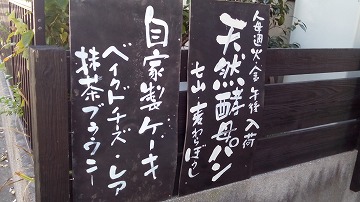 入荷
天然酵母パン
七山 麦わらぼうし
自家製ケーキ
ベイクドチーズ・レア
抹茶ブラウニー